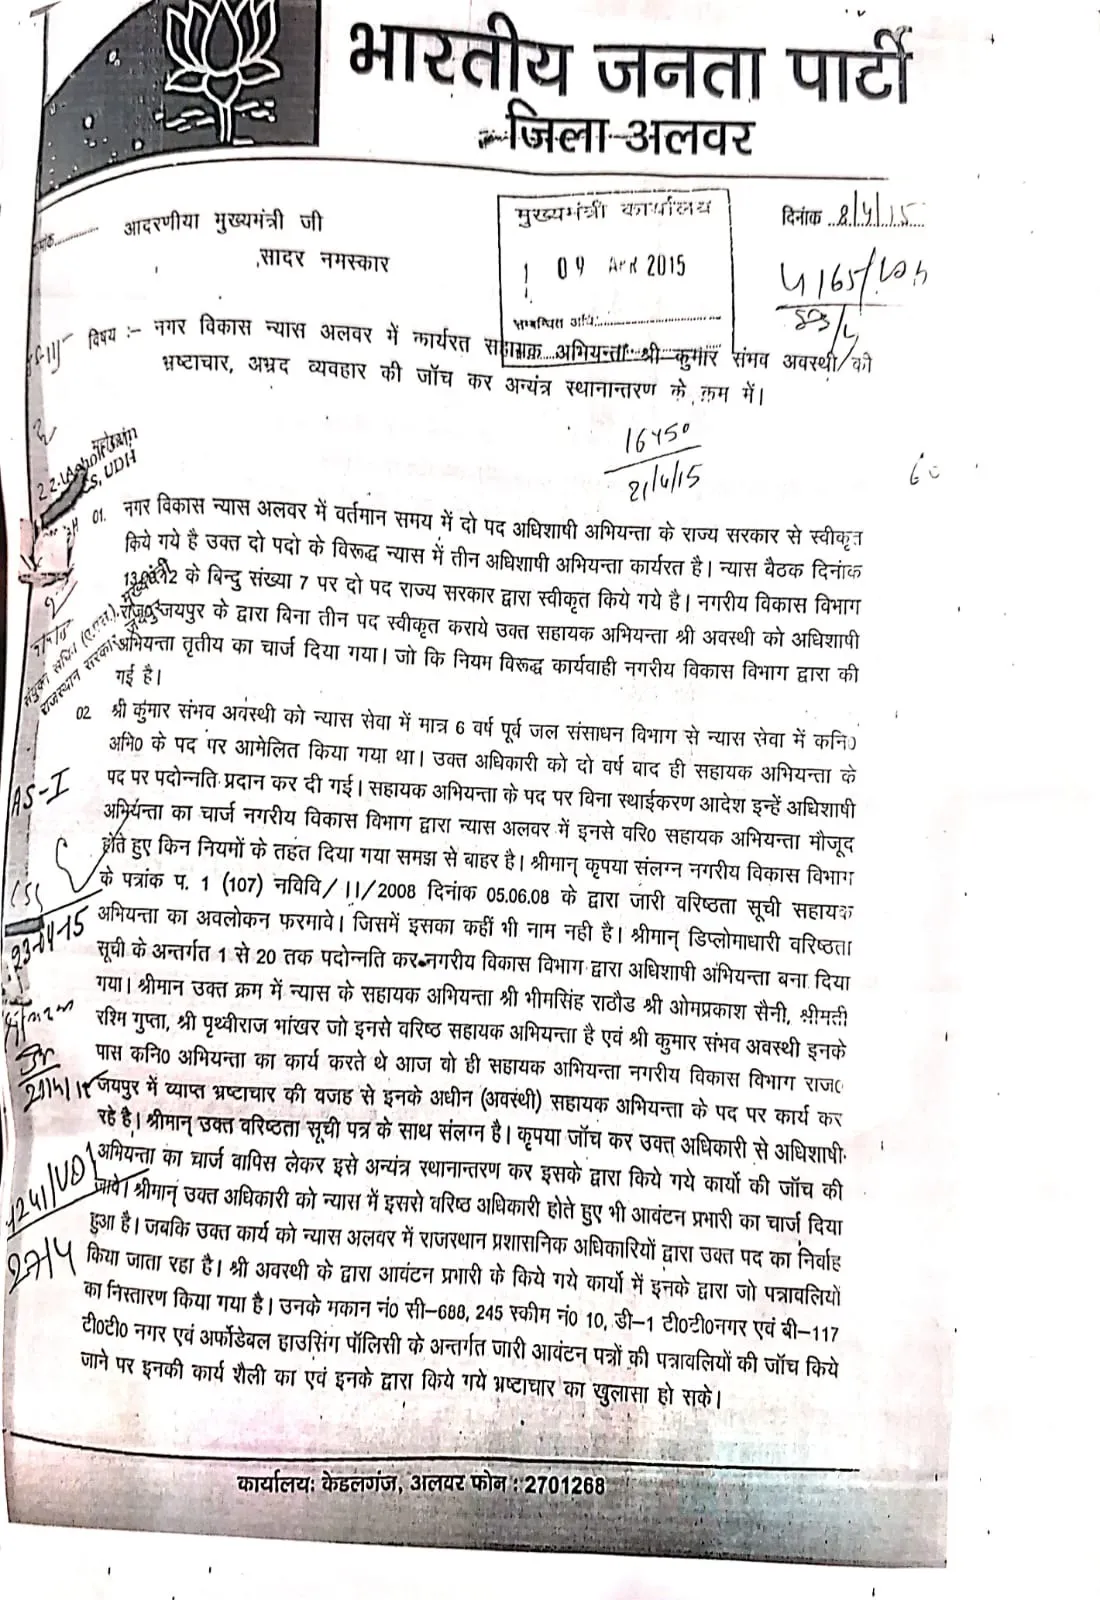 भारतीय जनता पार्टी
जिला-अलवर
मुख्यमंत्री कार्यालय
09 APR 2015
दिनांक 8/4/15
आदरणीया मुख्यमंत्री जी
सादर नमस्कार
विषय :- नगर विकास न्यास अलवर में कार्यरत सहायक अभियन्ता श्री कुमार संभव अवस्थी की
भ्रष्टाचार, अभ्रद व्यवहार की जॉच कर अन्यंत्र स्थानान्तरण के क्रम में।
16450
21/4/15
01. नगर विकास न्यास अलवर में वर्तमान समय में दो पद अधिशाषी अभियन्ता के राज्य सरकार से स्वीकृत
किये गये है उक्त दो पदो के विरूद्ध न्यास में तीन अधिशाषी अभियन्ता कार्यरत है। न्यास बैठक दिनांक
के बिन्दु संख्या 7 पर दो पद राज्य सरकार द्वारा स्वीकृत किये गये है। नगरीय विकास विभाग
जयपुर के द्वारा बिना तीन पद स्वीकृत कराये उक्त सहायक अभियन्ता श्री अवस्थी को अधिशाषी
अभियन्ता तृतीय का चार्ज दिया गया। जो कि नियम विरूद्ध कार्यवाही नगरीय विकास विभाग द्वारा की
गई है।
02 श्री कुंमार संभव अवंस्थी को न्यास सेवा में मात्र 6 वर्ष पूर्व जल संसाधन विभाग से न्यास सेवा में कनि०
अभि० के पद पर आमेलित किया गया था। उक्त अधिकारी को दो वर्ष बाद ही सहायक अभियन्ता के
पद पर पदोन्नति प्रदान कर दी गई। सहायक अभियन्ता के पद पर बिना स्थाईकरण आदेश इन्हें अधिशाषी
अभियन्ता का चार्ज नगरीय विकास विभाग द्वारा न्यास अलवर में इनसे वरि० सहायक अभियन्ता मौजूद
होते हुए किन नियमों के तहत दिया गया समझ से बाहर है। श्रीमान् कृपया संलग्न नगरीय विकास विभाग
के पत्रांक प. 1 (107) नविवि/II/2008 दिनांक 05.06.08 के द्वारा जारी वरिष्ठता सूची सहायक
अभियन्ता का अवलोकन फरमावे। जिसमें इसका कहीं भी नाम नही है। श्रीमान् डिप्लोमाधारी वरिष्ठता
सूची के अन्तर्गत 1 से 20 तक पदोन्नति कर नगरीय विकास विभाग द्वारा अधिशाषी अभियन्ता बना दिया
गया। श्रीमान उक्त क्रम में न्यास के सहायक अभियन्ता श्री भीमसिंह राठौड श्री ओमप्रकाश सैनी, श्रीमती
रश्मि गुप्ता, श्री पृथ्वीराज भांखर जो इनसे वरिष्ठ सहायक अभियन्ता है एवं श्री कुमार संभव अवस्थी इनके
पास कनि० अभियन्ता का कार्य करते थे आज वो ही सहायक अभियन्ता नगरीय विकास विभाग राज०
जयपुर में व्याप्त भ्रष्टाचार की वजह से इनके अधीन (अवस्थी) सहायक अभियन्ता के पद पर कार्य कर
रहे है। श्रीमान् उक्त वरिष्ठता सूची पत्र के साथ संलग्न है। कृपया जॉच कर उक्त अधिकारी से अधिशाषी
अभियन्ता का चार्ज वापिस लेकर इसे अन्यंत्र स्थानान्तरण कर इसके द्वारा किये गये कार्यो की जॉच की
जावे। श्रीमान् उक्त अधिकारी को न्यास में इससे वरिष्ठ अधिकारी होते हुए भी आवंटन प्रभारी का चार्ज दिया
हुआ है। जबकि उक्त कार्य को न्यास अलवर में राजस्थान प्रशासनिक अधिकारियों द्वारा उक्त पद का निर्वाह
किया जाता रहा है। श्री अवस्थी के द्वारा आवंटन प्रभारी के किये गये कार्यो में इनके द्वारा जो पत्रावलियों
का निस्तारण किया गया है। उनके मकान नं० सी-688, 245 स्कीम नं० 10, डी-1 टी०टी०नगर एवं बी-117
टी०टी० नगर एवं अर्फोडेबल हाउसिंग पॉलिसी के अन्तर्गत जारी आवंटन पत्रों की पत्रावलियों की जॉच किये
जाने पर इनकी कार्य शैली का एवं इनके द्वारा किये गये भ्रष्टाचार का खुलासा हो सके।
AS-I
23-04-15
27/4
कार्यालयः केडलगंज, अलवर फोन : 2701268